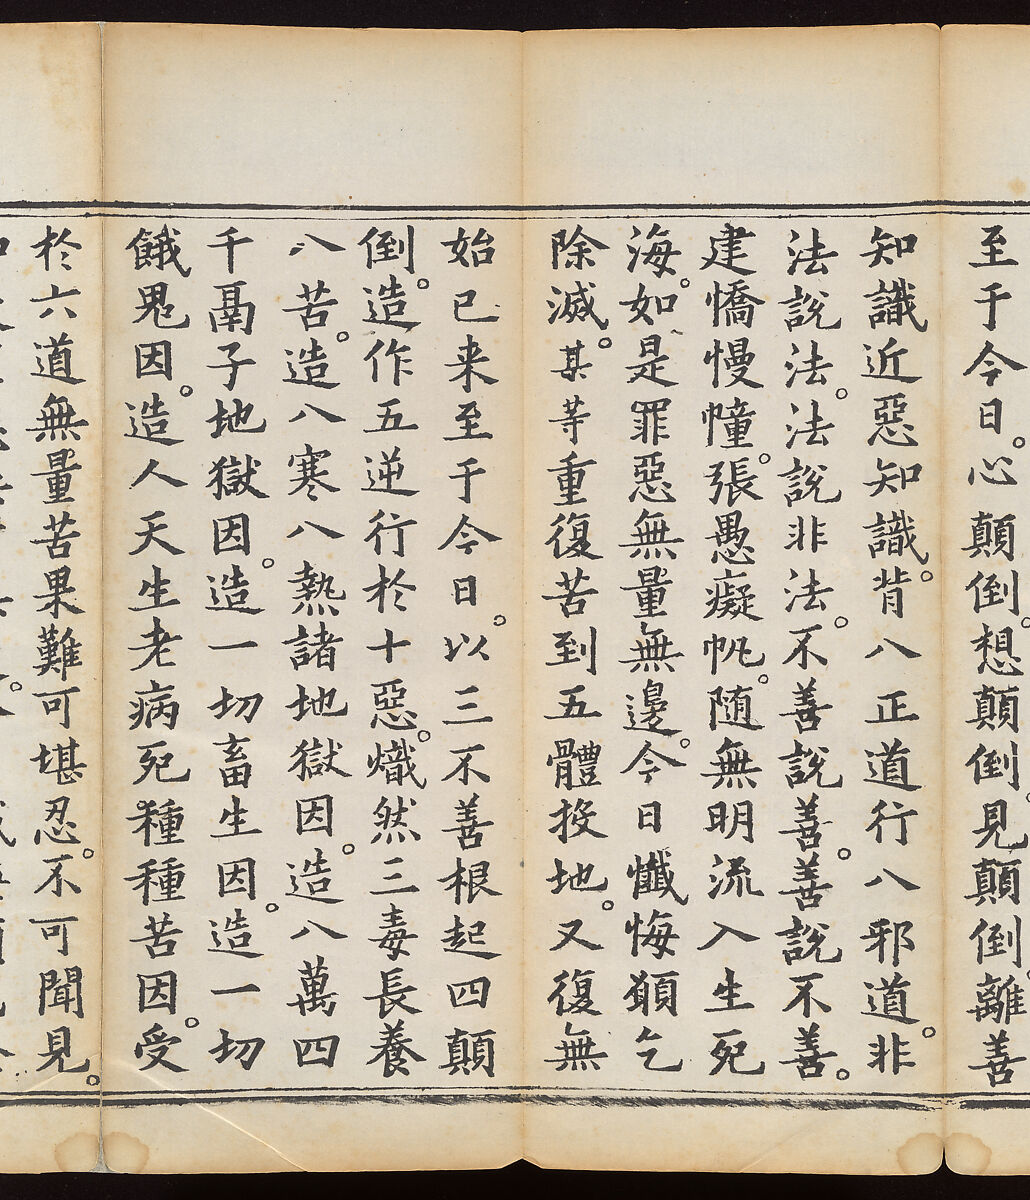 至于今日。心顛倒。想顛倒。見顛倒離善
知識近惡知識。背八正道行八邪道。非
法說法。法說非法。不善說善。善說不善。
建憍慢幢。張愚癡帆。随無明流入生死
海。如是罪惡無量無邊。今日懺悔願乞
除滅。某等重復苦到五體投地。又復無
始已来至于今日。以三不善根起四顛
倒。造作五逆行於十惡。熾然三毒長養
八苦。造八寒八熱諸地獄因。造八萬四
千鬲子地獄因。造一切畜生因。造一切
餓鬼因。造人天生老病死種種苦因。受
於六道無量苦果難可堪忍。不可聞見。